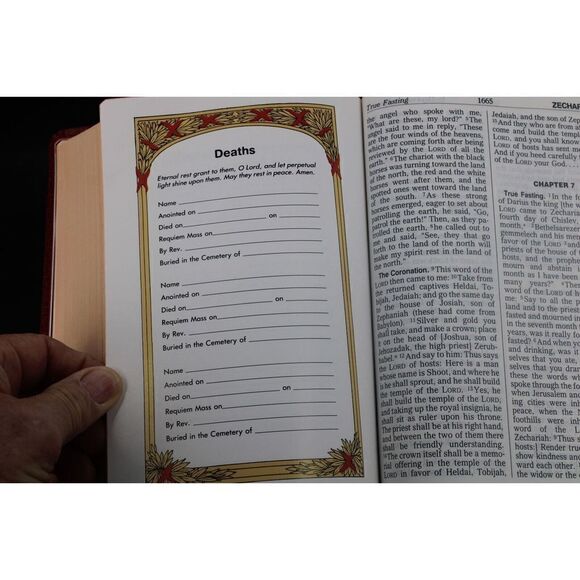 Deaths
Eternal rest grant to them, O Lord, and let perpetual
light shine upon them. May they rest in peace. Amen.
Name
Anointed on on
Died on on
Requiem Mass on
By Rev.
Buried in the Cemetery of
Name
Anointed on on
Died on on
Requiem Mass on
By Rev.
Buried in the Cemetery of
Name
Anointed on on
Died on on
Requiem Mass on
By Rev.
Buried in the Cemetery of
True Fasting 1665 ZECHAR
the angel who spoke with me,
"What are these, my lord?" 5The
angel said to me in reply, "These
are the four winds of the heavens,
which are coming forth after being
reviewed by the LORD of all the
earth." 6The chariot with the black
horses was going toward the land
of the north, the red and the white
horses went after them, and the
spotted ones went toward the land
of the south. 7As these strong
horses emerged, eager to set about
patrolling the earth, he said, "Go,
patrol the earth!" Then, as they pa-
trolled the earth, 8he called out to
me and said, "See, they that go
forth to the land of the north will
make my spirit rest in the land of
the north."
The Coronation. 9This word of the
LORD then came to me: 10Take from
the returned captives Heldai, To-
bijah, Jedaiah; and go the same day
to the house of Josiah, son of
Zephaniah (these had come from
Babylon). 11Silver and gold you
shall take, and make a crown; place
it on the head of [Joshua, son of
Jehozadak, the high priest] Zerub-
babel. 12And say to him: Thus says
the LORD of hosts: Here is a man
whose name is Shoot, and where he
is he shall sprout, and he shall build
the temple of the LORD. 13Yes, he
shall build the temple of the LORD,
and taking up the royal insignia, he
shall sit as ruler upon his throne.
The priest shall be at his right hand,
and between the two of them there
shall be friendly understanding.
14The crown itself shall be a memo-
rial offering in the temple of the
LORD in favor of Heldai, Tobijah,
Jedaiah, and the son of Zep
15And they who are from
come and build the temple
LORD, and you shall know
LORD of hosts has sent m
And if you heed carefully t
of the LORD your God . . .
CHAPTER 7
True Fasting. 1In the fo
of Darius the king [the w
LORD came to Zechariah
fourth day of Chislev,
month,
gemmelech and his men
favor of the LORD and
priests of the house of
hosts, and the prophe
mourn and abstain
month as I have been
many years?" Then
word of the LORD of h
me: 5Say to all the p
land and to the priest
fasted and mourned in
in the seventh month
years, was it really for
6And when you
and drinking, was it
selves that you ate,
selves that you dran
these the words wh
spoke through the fo
when Jerusalem and
ing cities were inh
peace, when the N
foothills were inh
word of the LORD
Zechariah: 9Thus s
hosts: Render true
show kindness and
ward each other.
the widow or the o